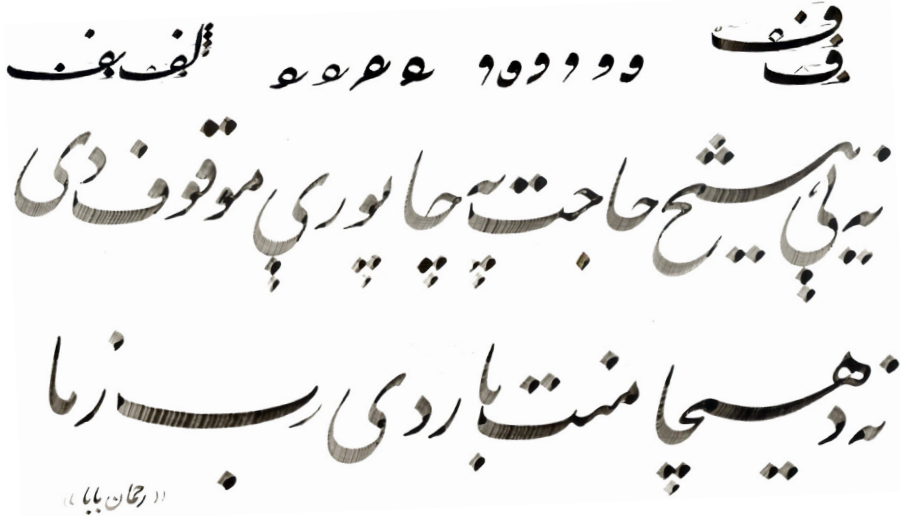 ف ف و و و و و و لف بف
نه یې هیڅ حاجت په چا پورې موقوف دی
نه د هیچا منت بار دی رب زما
((رحمان بابا))